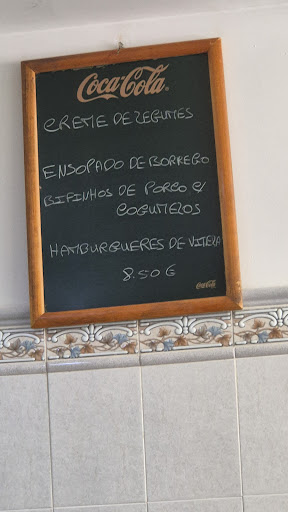 Coca-Cola
CREME DE LEGUMES
ENSOPADO DE BORREGO
BIFINHOS DE PORCO C/
COGUMELOS
HAMBURGUERES DE VITELA
8.50€
Coca-Cola